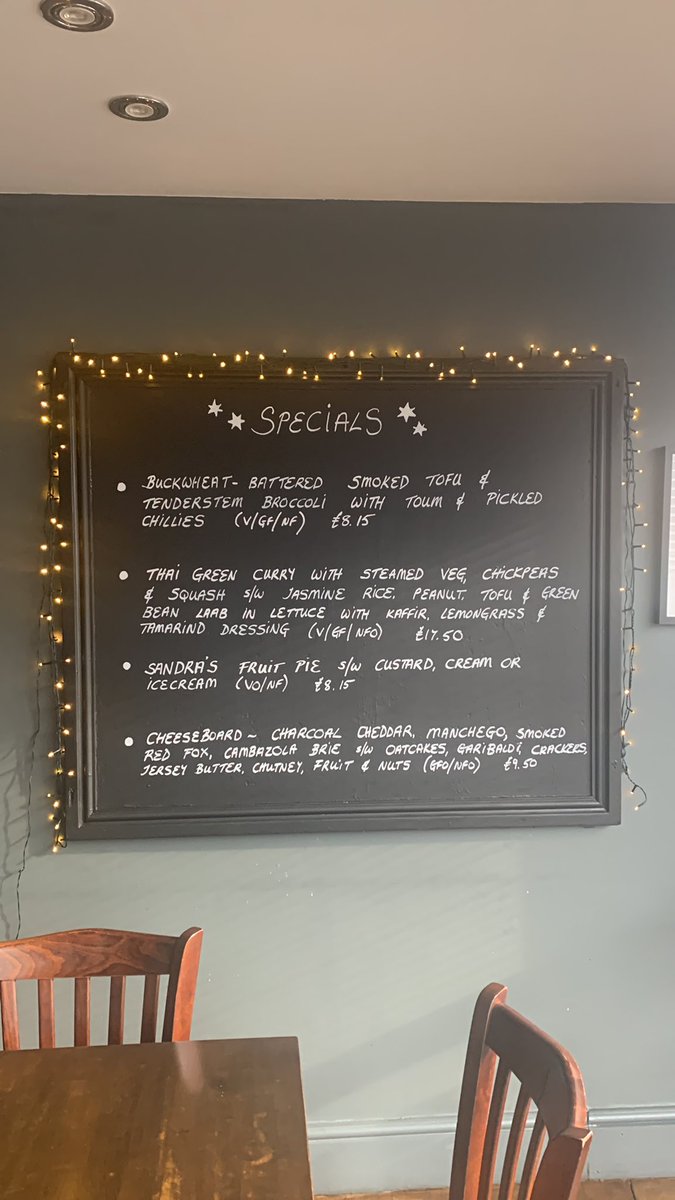 SPECIALS
BUCKWHEAT-BATTERED SMOKED TOFU &
TENDERSTEM BROCCOLI WITH TOUM & PICKLED
CHILLIES (V/GF/NF) £8.15
THAI GREEN CURRY WITH STEAMED VEG, CHICKPEAS
& SQUASH S/W JASMINE RICE, PEANUT, TOFU & GREEN
BEAN LAAB IN LETTUCE WITH KAFFIR, LEMONGRASS &
TAMARIND DRESSING (V/GF/NFO) £17.50
SANDRA'S FRUIT PIE S/W CUSTARD, CREAM OR
ICECREAM (VO/NF) £8.15
CHEESEBOARD ~ CHARCOAL CHEDDAR, MANCHEGO, SMOKED
RED FOX, CAMBAZOLA BRIE S/W OATCAKES, GARIBALDI, CRACKERS,
JERSEY BUTTER, CHUTNEY, FRUIT & NUTS (GFO/NFO) £9.50